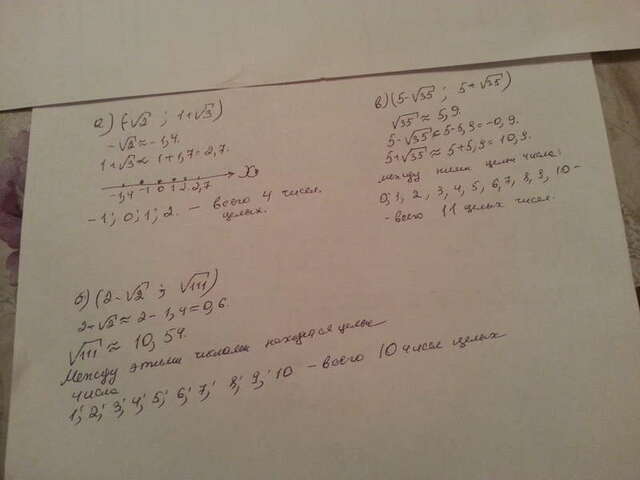 а) (-√2 ; 1+√3)
-√2 ≈ -1,4.
1+√3 ≈ 1+1,7=2,7.
-1,4 -1 0 1 2 2,7 x
-1; 0; 1; 2. - всего 4 чисел
целых.
в) (5-√35 ; 5+√35)
√35 ≈ 5,9.
5-√35 ≈ 5-5,9=-0,9.
5+√35 ≈ 5+5,9=10,9.
между ними целы числа:
0; 1, 2, 3, 4, 5, 6, 7, 8, 9, 10 -
- всего 11 целых чисел.
б) (2-√2 ; √111)
2-√2 ≈ 2-1,4=0,6.
√111 ≈ 10,54.
Между этими числами находятся целые
числа
1; 2; 3; 4; 5; 6; 7; 8; 9; 10 - всего 10 чисел целых